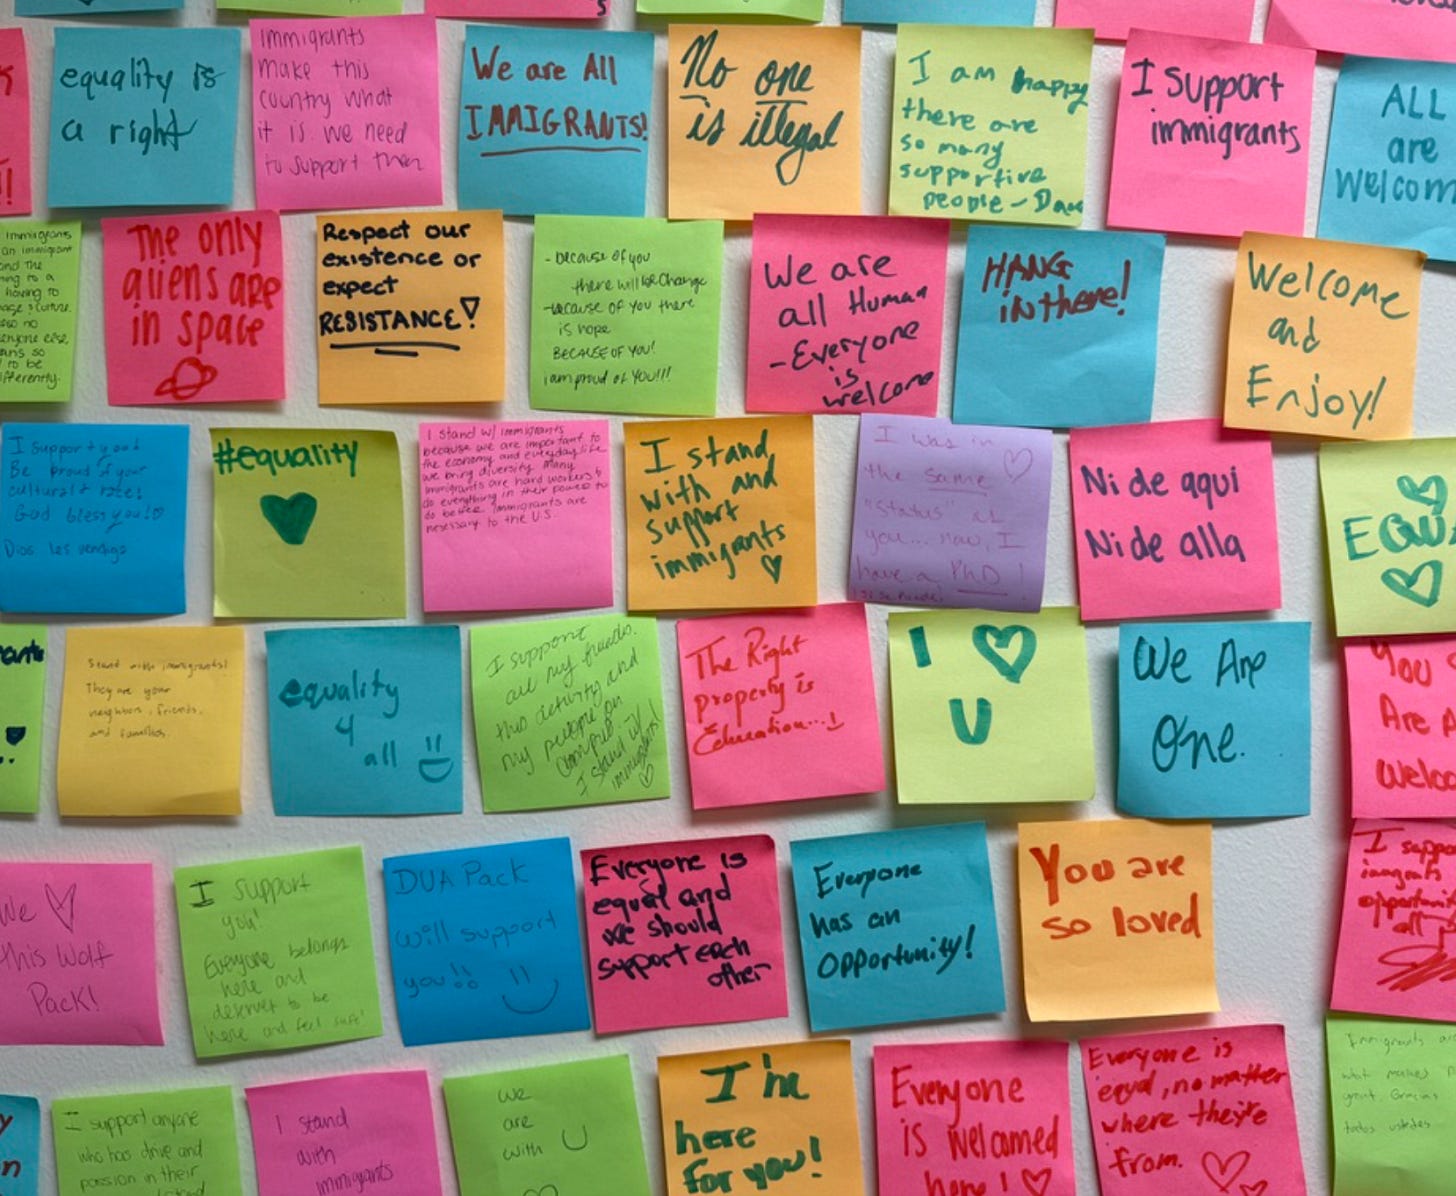 equality is
a right
Immigrants
make this
country what
it is. We need
to support them
We are All
IMMIGRANTS!
No one
is illegal
I am happy
there are
so many
supportive
people - Dave
I support
immigrants
ALL
are
Welcom
immigrants
an immigrant
and the
ing to a
having to
no
enyone else,
so
to be
ifferently.
The only
aliens are
in space
Respect our
existence or
expect
RESISTANCE!
- because of you
there will be change
- because of you there
is hope
BECAUSE OF YOU!
i am proud of YOU!!!
We are
all Human
- Everyone
is
welcome
HANG
in there!
Welcome
and
Enjoy!
I support you!
Be proud of your
cultural & race!
God bless you!
Dios les vendiga
#equality
I stand w/ immigrants
because we are important to
the economy and everyday life
we bring diversity. Many
immigrants are hard workers &
do everything in their power to
do better. Immigrants are
necessary to the U.S.
I stand
with and
support
immigrants
I was in
the same
"status" as
you... now, I
have a PhD!
¡Si se puede!
Ni de aqui
Ni de alla
EQU
Stand with immigrants!
They are your
neighbors, friends,
and families.
equality
4
all
I support
all my friends.
this activity and
my people on
campus.
I stand w/
immigrants!
The Right
property is
Education...!
I
U
We Are
One.
You
Are
Welco
We
this Wolf
Pack!
I support
you!
Everyone belongs
here and
deserves to be
here and feel safe!
DUA Pack
will support
you!!
Everyone is
equal and
we should
support each
other
Everyone
has an
opportunity!
You are
so loved
I suppo
imagrats
opportunit
all
I support anyone
who has drive and
passion in their
I stand
with
immigrants
we
are
with
I'm
here
for you!
Everyone
is welcomed
here!
Everyone is
eqyal, no matter
where they're
from.
Immigrants are
what makes
great. Gracias
todos ustedes